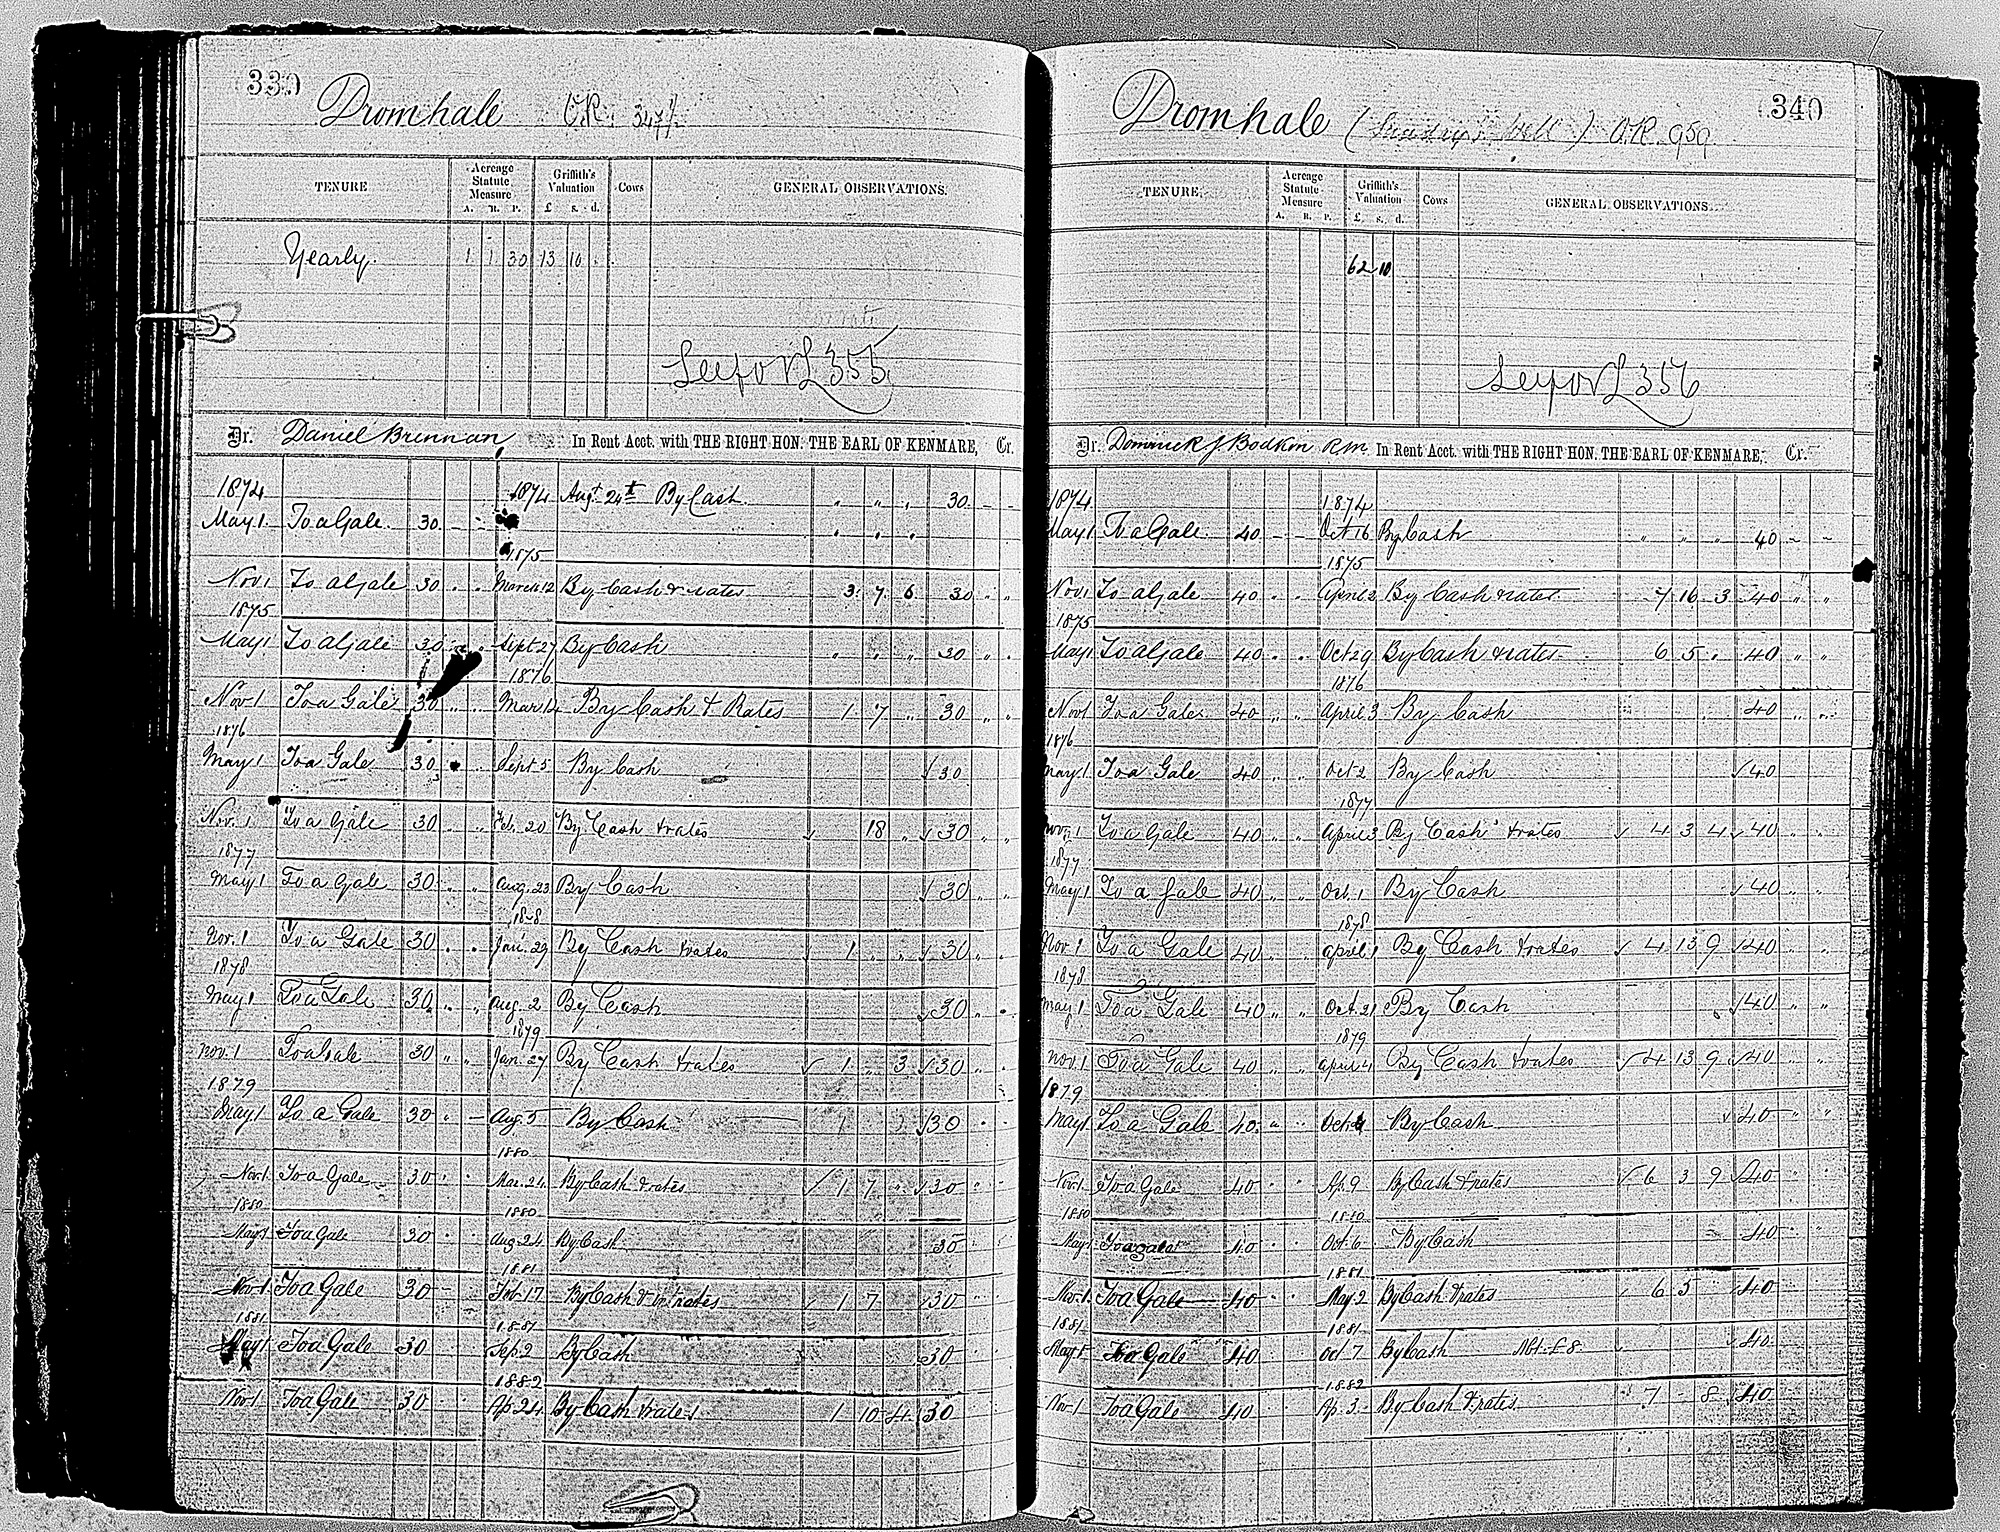 339
Dromhale O.R. 347/-
TENURE Acreage Statute Measure A. R. P. Griffith's Valuation £ s. d. Cows GENERAL OBSERVATIONS.
Yearly. 1 1 30 13 10 .
See for L 355
Dr. Daniel Brennan In Rent Acct. with THE RIGHT HON. THE EARL OF KENMARE, Cr.
1874 1874 Augt 24th By Cash " " " 30 - -
May 1. To a Gale. 30 - - " " "
1875
Nov 1 To a Gale 30 " " March 12 By Cash & rates 3 7 6 30 " "
1875
May 1 To a Gale 30 " " Sept 27 By Cash " " " 30 " "
1876
Nov 1 To a Gale 30 " " Mar 14 By Cash & Rates 1 7 " 30 " "
1876
May 1 To a Gale 30 Sept 5 By Cash √ 30
Nov. 1 To a Gale 30 " " Feb. 20 By Cash & rates √ 18 " √ 30 " "
1877
May 1 To a Gale 30 " " Aug. 23 By Cash √ 30 " "
1878
Nov. 1 To a Gale 30 " " Jan. 29 By Cash & rates √ 1 " " √ 30 " "
1878
May 1 To a Gale 30 " " Aug. 2 By Cash √ 30 " "
1879
Nov. 1 To a Gale 30 " " Jan. 27 By Cash & rates √ 1 " 3 √ 30 " "
1879
May 1 To a Gale 30 " - Aug. 5 By Cash √ 30 " "
1880
Nov. 1 To a Gale 30 " " Mar. 24 By Cash & rates √ 1 7 " √ 30 " "
1880 1880
May 1 To a Gale 30 " " Aug. 24 By Cash 30 " "
1881
Nov. 1 To a Gale 30 - - Feb. 17 By Cash & rates √ 1 7 √ 30 " "
1881 1881
May 1 To a Gale 30 Sep. 2 By Cash 30 " "
1882
Nov 1 To a Gale 30 " " Ap. 24 By Cash & rates 1 10 4 √ 30 " "
340
Dromhale ( Well ) O.R. 959
TENURE Acreage Statute Measure A. R. P. Griffith's Valuation £ s. d. Cows GENERAL OBSERVATIONS.
62 10
See for L 356
Dr. Dominick J. Bodkin R.M. In Rent Acct. with THE RIGHT HON. THE EARL OF KENMARE, Cr.
1874 1874
May 1 To a Gale. 40 - - Oct 16 By Cash " " " 40 - -
1875
Nov 1 To a Gale 40 " " April 2 By Cash & rates 7 16 3 40 " "
1875
May 1 To a Gale 40 " " Oct 29 By Cash & rates 6 5 " 40 " "
1876
Nov 1 To a Gale 40 " " April 3 By Cash 40 " "
1876
May 1 To a Gale 40 " " Oct 2 By Cash √ 40
1877
Nov. 1 To a Gale 40 " " April 3 By Cash & rates √ 4 3 4 √ 40 " "
1877
May 1 To a Gale 40 " " Oct. 1 By Cash √ 40 " "
1878
Nov. 1 To a Gale 40 " " April 1 By Cash & rates √ 4 13 9 √ 40 " "
1878
May 1 To a Gale 40 " " Oct. 21 By Cash √ 40 " "
1879
Nov. 1 To a Gale 40 " " April 4 By Cash & rates √ 4 13 9 √ 40 "
1879
May 1 To a Gale 40 " " Oct 4 By Cash √ 40 " "
Nov. 1 To a Gale 40 " " Ap. 9 By Cash & rates √ 6 3 9 √ 40 " "
1880 1880
May 1 To a gale 40 " " Oct. 6 By Cash 40 " "
1881
Nov. 1 To a Gale 40 " " May 2 By Cash & rates √ 6 5 √ 40 " "
1881 1881
May 1 To a Gale 40 Oct 7 By Cash Abt. £8 √ 40 "
1882
Nov 1 To a Gale 40 Ap. 3 By Cash & rates 7 - 8 √ 40 "